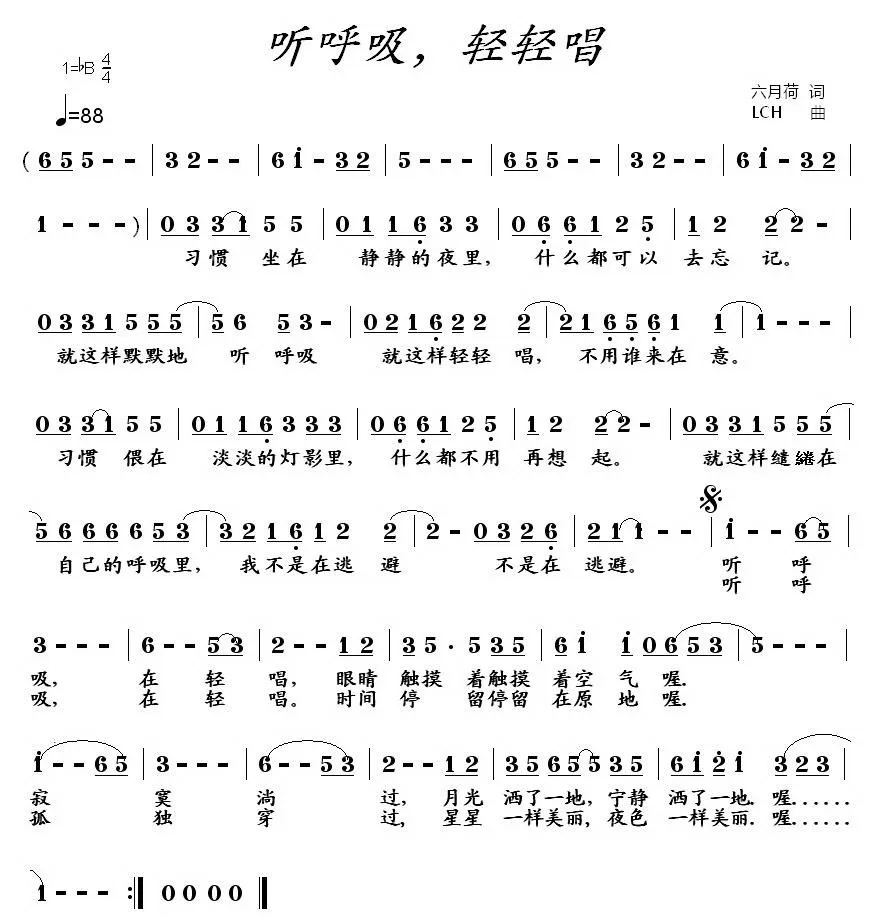 听呼吸，轻轻唱
1=♭B 4/4
♩=88
六月荷 词
LCH 曲
( 6 5 5 - - | 3 2 - - | 6 i - 3 2 | 5 - - - | 6 5 5 - - | 3 2 - - | 6 i - 3 2 |
1 - - - ) | 0 3 3 3 1 5 5 | 0 1 1 6 3 3 | 0 6 6 1 2 5 | 1 2 2 2 - |
习惯 坐在 静静的夜里， 什么都可以 去忘 记。
0 3 3 1 5 5 5 | 5 6 5 3 - | 0 2 1 6 2 2 2 | 2 1 6 5 6 1 1 | 1 - - - |
就这样默默地 听 呼吸 就这样轻轻 唱， 不用谁来在 意。
0 3 3 3 1 5 5 | 0 1 1 6 3 3 3 | 0 6 6 1 2 5 | 1 2 2 2 - | 0 3 3 1 5 5 5 |
习惯 偎在 淡淡的灯影里， 什么都不用 再想 起。 就这样缱绻在
5 6 6 6 6 5 3 | 3 2 1 6 1 2 2 | 2 - 0 3 2 6 | 2 1 1 1 - - | i - - 6 5 |
自己的呼吸里， 我不是在逃 避 不是在 逃避。 听 呼
听 呼
3 - - - | 6 - - 5 3 | 2 - - 1 2 | 3 5 · 5 3 5 | 6 i i 0 6 5 3 | 5 - - - |
吸， 在 轻 唱， 眼睛 触摸 着触摸 着空 气 喔.
吸， 在 轻 唱。 时间 停 留停留 在原 地 喔.
i - - 6 5 | 3 - - - | 6 - - 5 3 | 2 - - 1 2 | 3 5 6 5 5 3 5 | 6 i 2 i | 3 2 3 |
寂 寞 淌 过, 月光 洒了一地, 宁静 洒了一地. 喔......
孤 独 穿 过, 星星 一样美丽, 夜色 一样美丽. 喔......
1 - - - :| 0 0 0 0 |